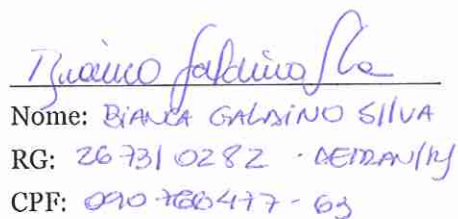 Bianca Galdino Silva
Nome: BIANCA GALDINO SILVA
RG: 26731 0282 - DETRAN/RJ
CPF: